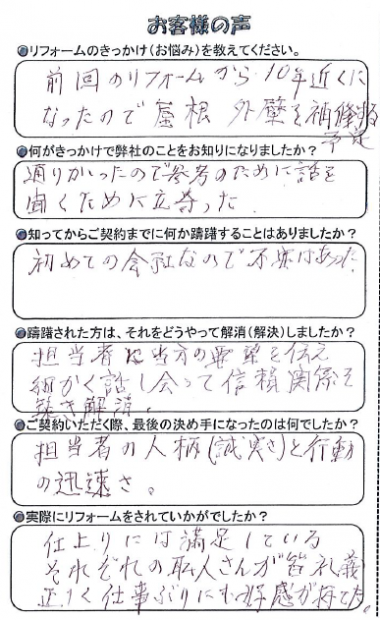 お客様の声
●リフォームのきっかけ(お悩み)を教えてください。
前回のリフォームから10年近くに
なったので屋根 外壁を補修する
予定
●何がきっかけで弊社のことをお知りになりましたか?
通りかかったので参考のために話を
聞くために立寄った
●知ってからご契約までに何か躊躇することはありましたか?
初めての会社なので不安はあった
●躊躇された方は、それをどうやって解消(解決)しましたか?
担当者に当方の要望を伝え
細かく話し合って信頼関係を
築き解消。
●ご契約いただく際、最後の決め手になったのは何でしたか?
担当者の人柄(誠実さ)と行動
の迅速さ。
●実際にリフォームをされていかがでしたか?
仕上りには満足している
それぞれの職人さんが皆礼義
正しく仕事ぶりにも好感が持てた。